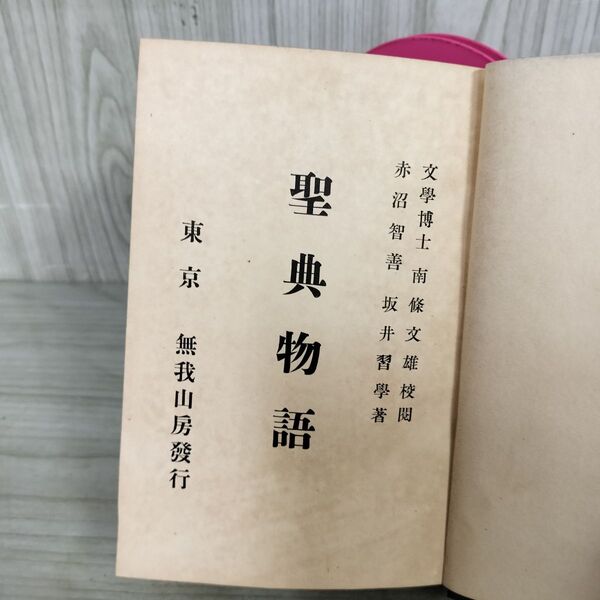 文學博士 南條文雄校閲
赤沼智善 坂井習學著
聖典物語
東京 無我山房發行